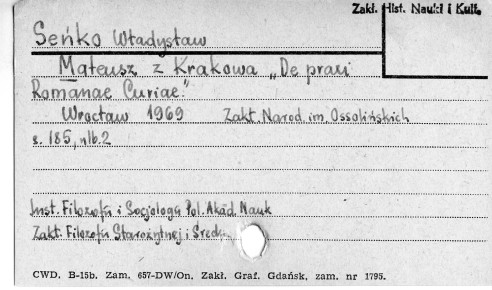 Zakł. Hist. Nauki i Kult.
Seńko Władysław
Mateusz z Krakowa „De praxi
Romanae Curiae."
Wrocław 1969 Zakł. Narod. im. Ossolińskich
s. 185, nlb. 2
Inst. Filozofii i Socjologii Pol. Akad. Nauk
Zakł. Filozofii Starożytnej i Średn
CWD. B-15b. Zam. 657-DW/On. Zakł. Graf. Gdańsk, zam. nr 1795.